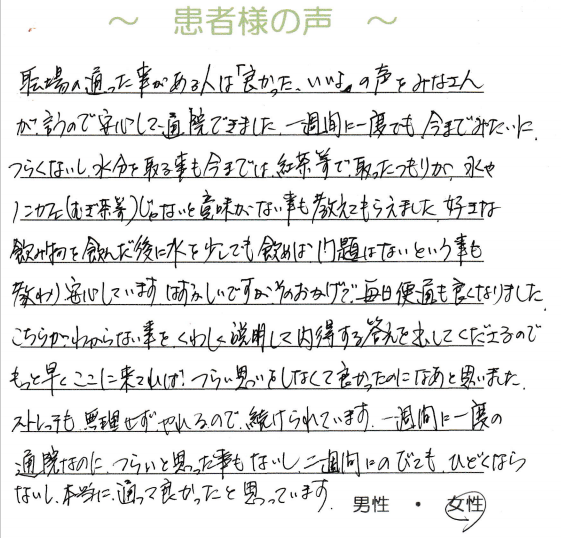 ～ 患者様の声 ～
職場の通った事がある人は「良かった、いいよ」の声をみなさん
が言うので安心して通院できました。一週間に一度でも、今までみたいに
つらくないし、水分を取る事も今までは、紅茶等で取ったつもりが、水や
ノンカフェ(むぎ茶等)じゃないと意味がない事も教えてもらえました。好きな
飲み物を飲んだ後に水を少しでも飲めば問題はないという事も
教わり安心しています。はずかしいですが、そのおかげで毎日便通も良くなりました。
こちらがわからない事を、くわしく説明して内得する答えを出してくださるので
もっと早くここに来てれば、つらい思いをしなくて良かったのになあと思いました。
ストレッチも無理せずやれるので、続けられています。一週間に一度の
通院なのに、つらいと思った事もないし、二週間にのびても、ひどくなら
ないし、本当に通って良かったと思っています。
男性 ・ 女性